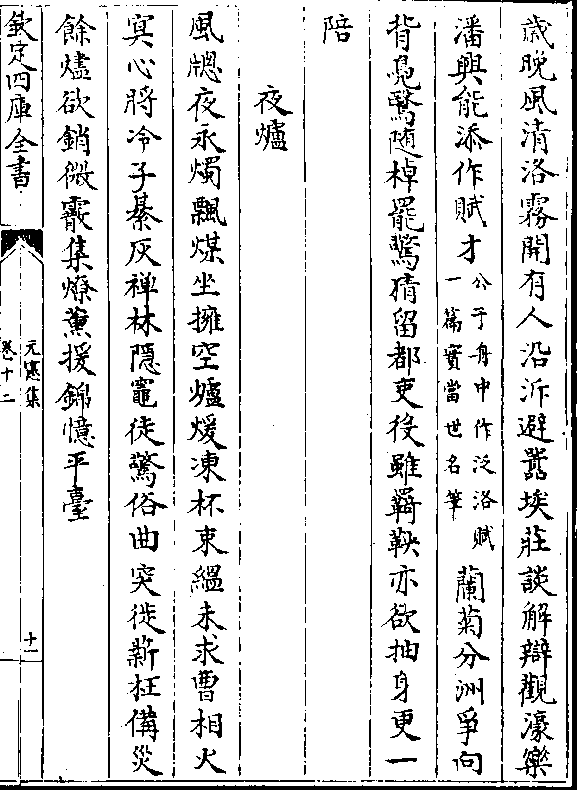 歲晚風清洛霧開有人沿泝避囂埃莊談解辯觀濠樂
潘興能添作賦才公于舟中作泛洛賦
一篇實當世名筆蘭菊分洲爭向
背鳧鷖隨棹罷驚猜留都吏役雖羇鞅亦欲抽身更一
陪
夜爐
風牕夜永燭飄煤坐擁空爐煖凍杯束緼未求曹相火
冥心將冷子綦灰禪林隱竈徒驚俗曲突徙薪枉備災
餘燼欲銷微霰集燎薰援錦憶平臺
欽定四庫全書
元憲集
卷十二
十一